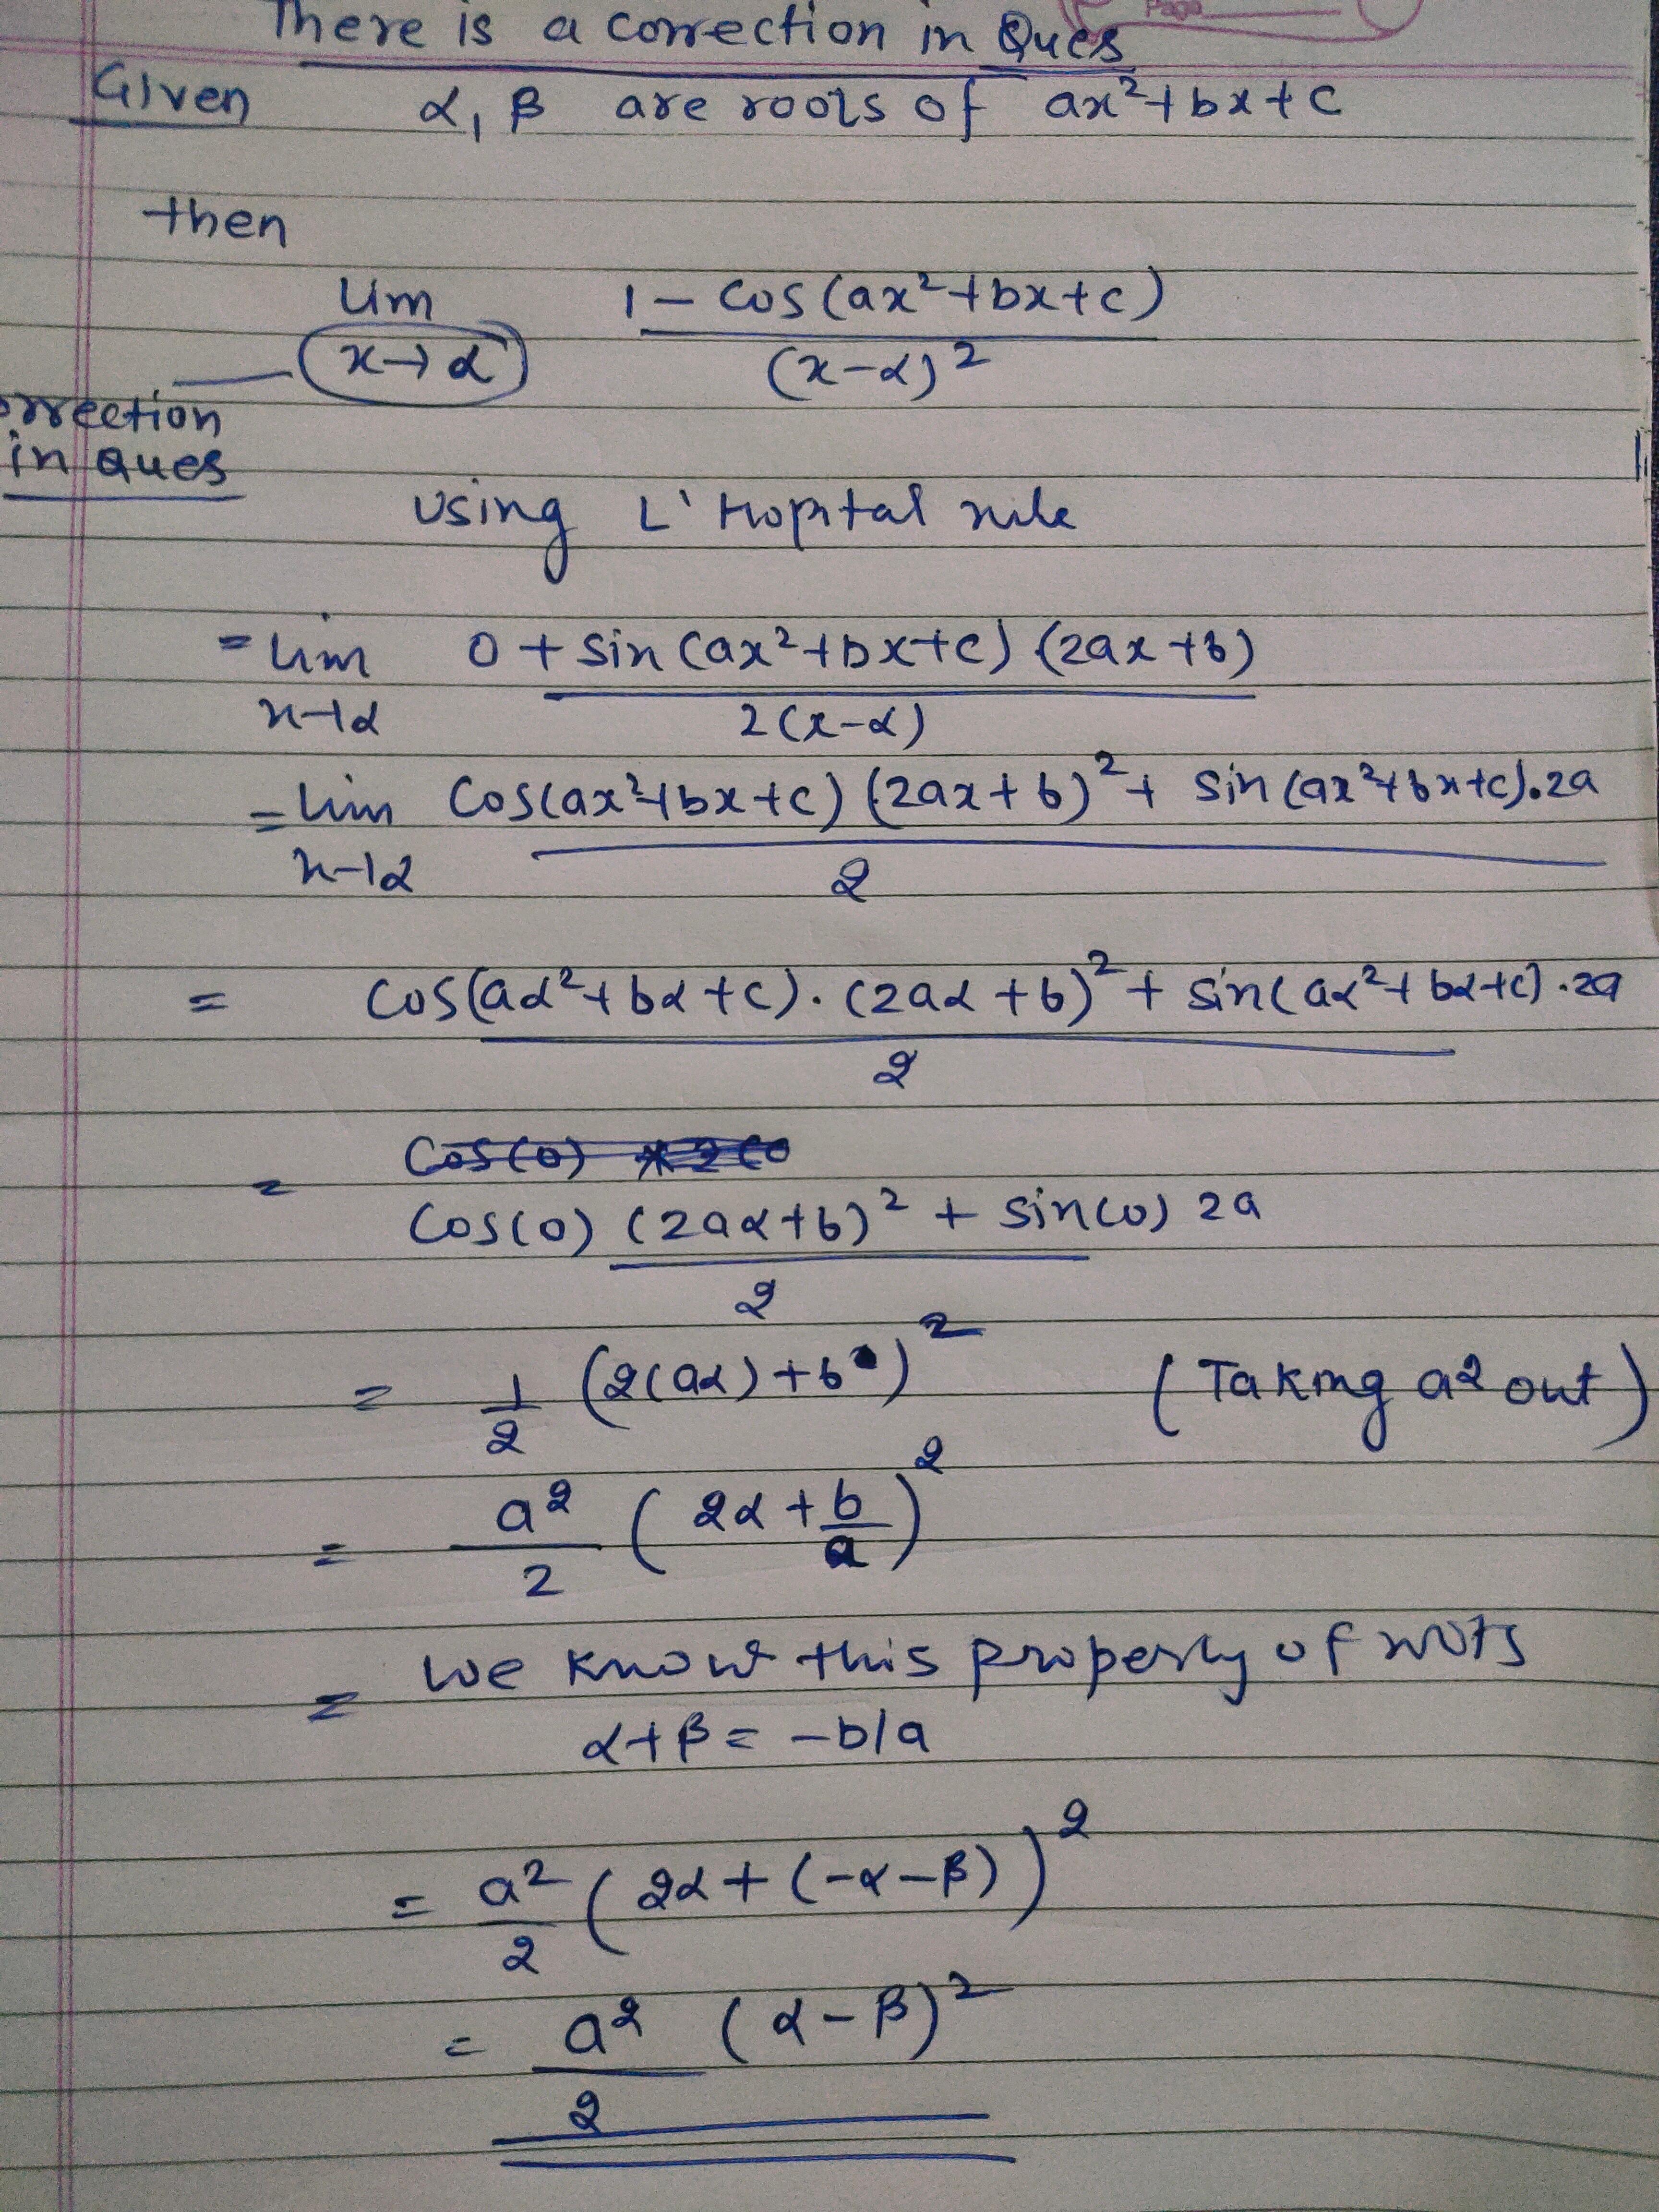 Page
There is a correction in Ques
Given α, β are roots of ax²+bx+c
then
Lim 1 - cos(ax²+bx+c)
x→α (x-α)²
orrection
in Ques
Using L'Hopital rule
= Lim 0 + sin(ax²+bx+c) (2ax+b)
x→α 2(x-α)
= Lim Cos(ax²+bx+c) (2ax+b)² + sin(ax²+bx+c).2a
x→α 2
= cos(aα²+bα+c).(2aα+b)² + sin(aα²+bα+c).2a
2
= Cos(0)
Cos(0) (2aα+b)² + sin(0) 2a
2
= 1/2 (2(aα)+b)² (Taking a2 out)
= a²/2 (2α + b/a)²
= we know this property of roots
α+β = -b/a
= a²/2 (2α + (-α-β))²
= a²/2 (α-β)²